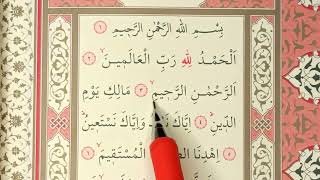 بِسْمِ اللهِ الرَّحْمٰنِ الرَّحِيمِ ١
اَلْحَمْدُ لِلّٰهِ رَبِّ الْعَالَمِينَ ٢
اَلرَّحْمٰنِ الرَّحِيمِ ٣ مَالِكِ يَوْمِ
الدِّينِ ٤ اِيَّاكَ وَاِيَّاكَ نَسْتَعِينُ ٥
اِهْدِنَا الْمُسْتَقِيمَ ٦